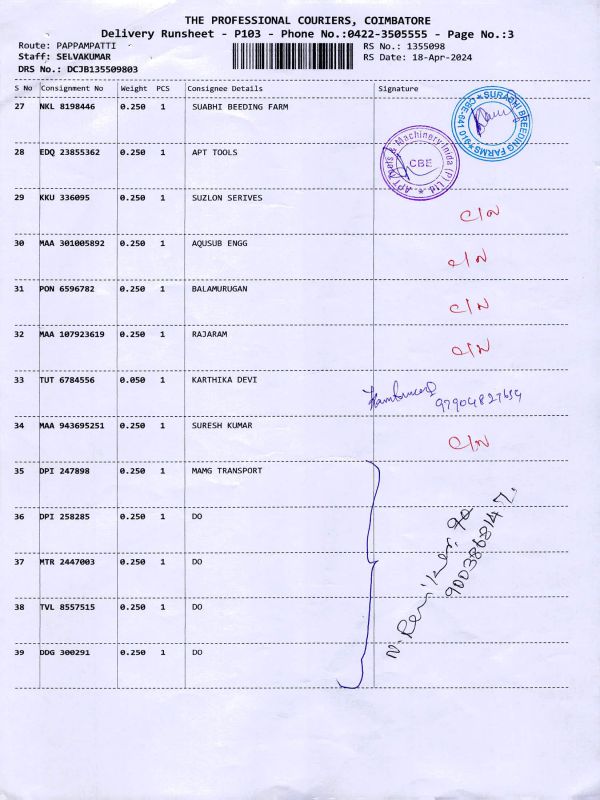 THE PROFESSIONAL COURIERS, COIMBATORE
Delivery Runsheet - P103 - Phone No.:0422-3505555 - Page No.:3
Route: PAPPAMPATTI RS No.: 1355098
Staff: SELVAKUMAR RS Date: 18-Apr-2024
DRS No.: DCJB135509803
S No Consignment No Weight PCS Consignee Details Signature
27 NKL 8198446 0.250 1 SUABHI BEEDING FARM
SURABHI BREEDING FARMS CBE-641 016
28 EDQ 23855362 0.250 1 APT TOOLS
APT Tools & Machinery Inida (P) Ltd. CBE
29 KKU 336095 0.250 1 SUZLON SERIVES
C/N
30 MAA 301005892 0.250 1 AQUSUB ENGG
C/N
31 PON 6596782 0.250 1 BALAMURUGAN
C/N
32 MAA 107923619 0.250 1 RAJARAM
C/N
33 TUT 6784556 0.050 1 KARTHIKA DEVI
97904827654
34 MAA 943695251 0.250 1 SURESH KUMAR
C/N
35 DPI 247898 0.250 1 MAMG TRANSPORT
36 DPI 258285 0.250 1 DO
37 MTR 2447003 0.250 1 DO
9003868147
38 TVL 8557515 0.250 1 DO
39 DDG 300291 0.250 1 DO